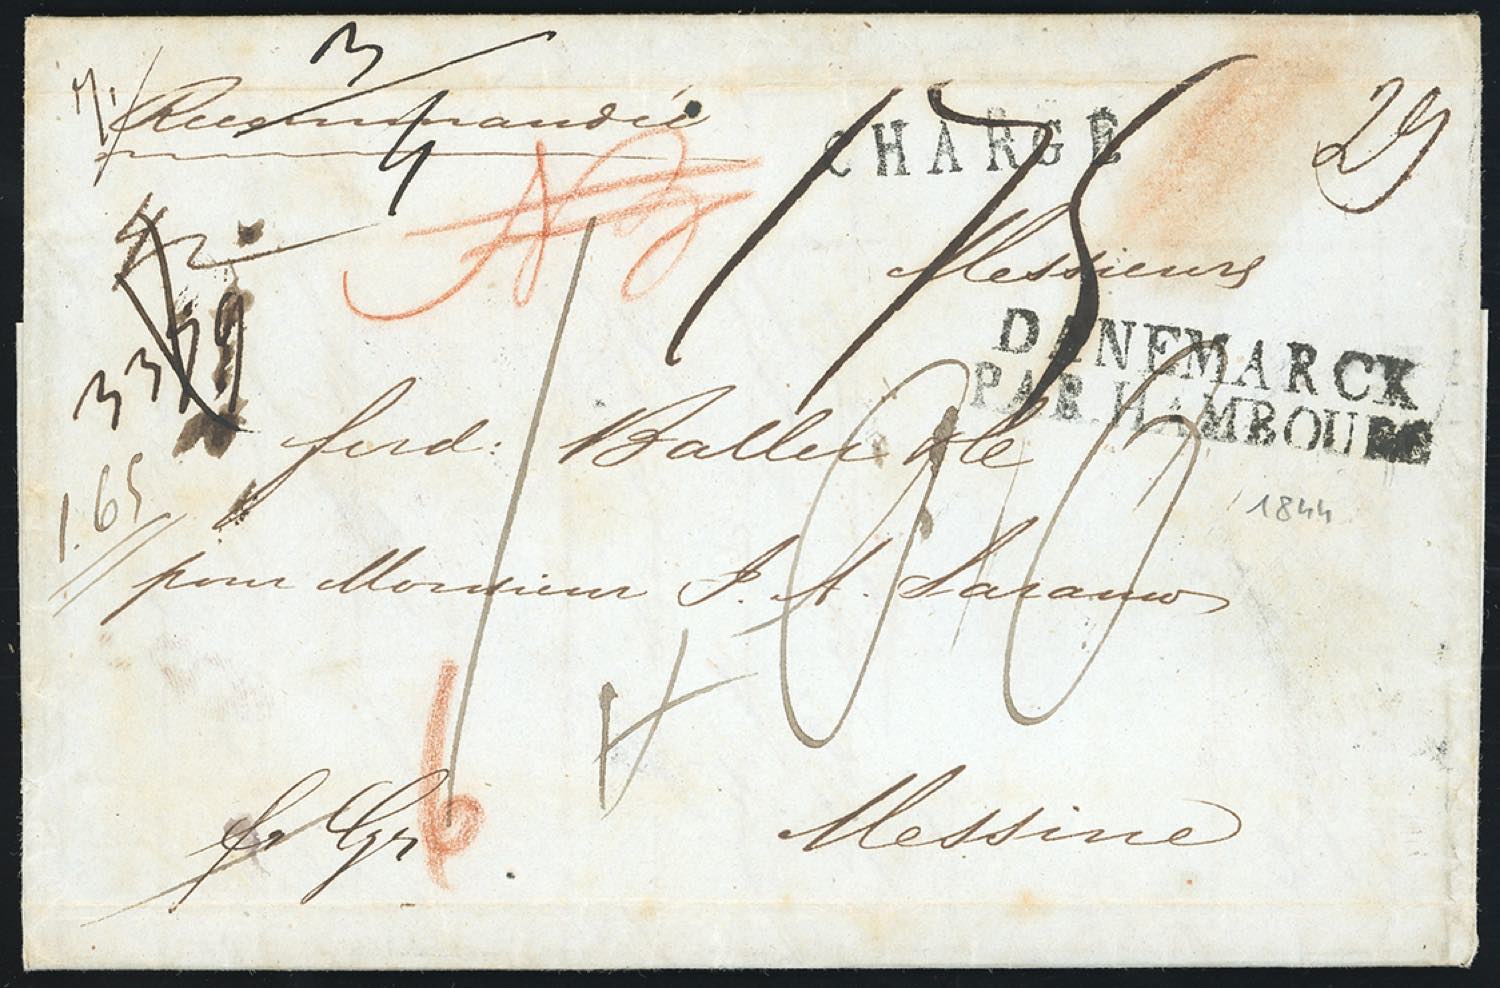 3
4
Recommandée
CHARGÉ
175
29
Messieurs
DANEMARCK
PAR HAMBOURG
3379
ferd: Baller & Ce
1.65
1844
pour Monsieur J. A. Saramo
6
fr Gr
Messine